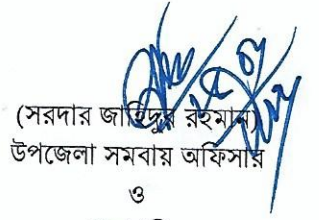 (সরদার জাহিদুর রহমান)
উপজেলা সমবায় অফিসার
ও